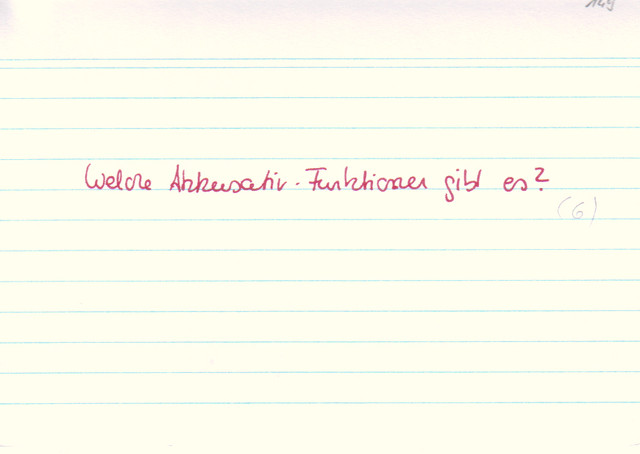 149
Welche Akkusativ-Funktionen gibt es?
(6)